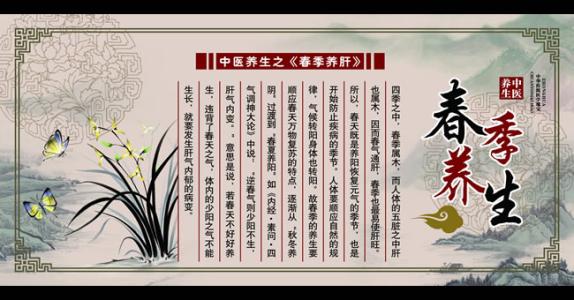 中医养生之《春季养肝》
中医
养生
春季
养生
四季之中，春季属木，而人体的五脏之中肝
也属木，因而春气通肝，春季也最易使肝旺。
所以，春天既是养阳恢复元气的季节，也是
开始防止疾病的季节。人体要顺应自然的规
律，气候转阳身体也转阳。故春季的养生要
顺应春天万物复苏的特点，逐渐从“秋冬养
阴”过渡到“春夏养阳”。如《内经·素问·四
气调神大论》中说，“逆春气则少阳不生，
肝气内变。”意思是说，若春天不好好养
生，违背了春天之气，体内的少阳之气不能
生长，就要发生肝气内郁的病变。